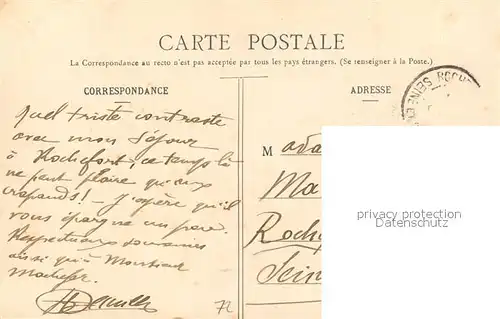 CARTE POSTALE
La Correspondance au recto n'est pas acceptée par tous les pays étrangers. (Se renseigner à la Poste.)
CORRESPONDANCE
ADRESSE
Quel triste contraste
avec mon séjour
à Rochefort, ce temps là
ne peut plaire qu'aux
crapauds! – J'espère qu'il
vous épargne un peu.
Respectueux souvenirs
ainsi qu'à Monsieur
72
M ada
Ma
Roche
Seine
SEINE
ROCH
privacy protection
Datenschutz